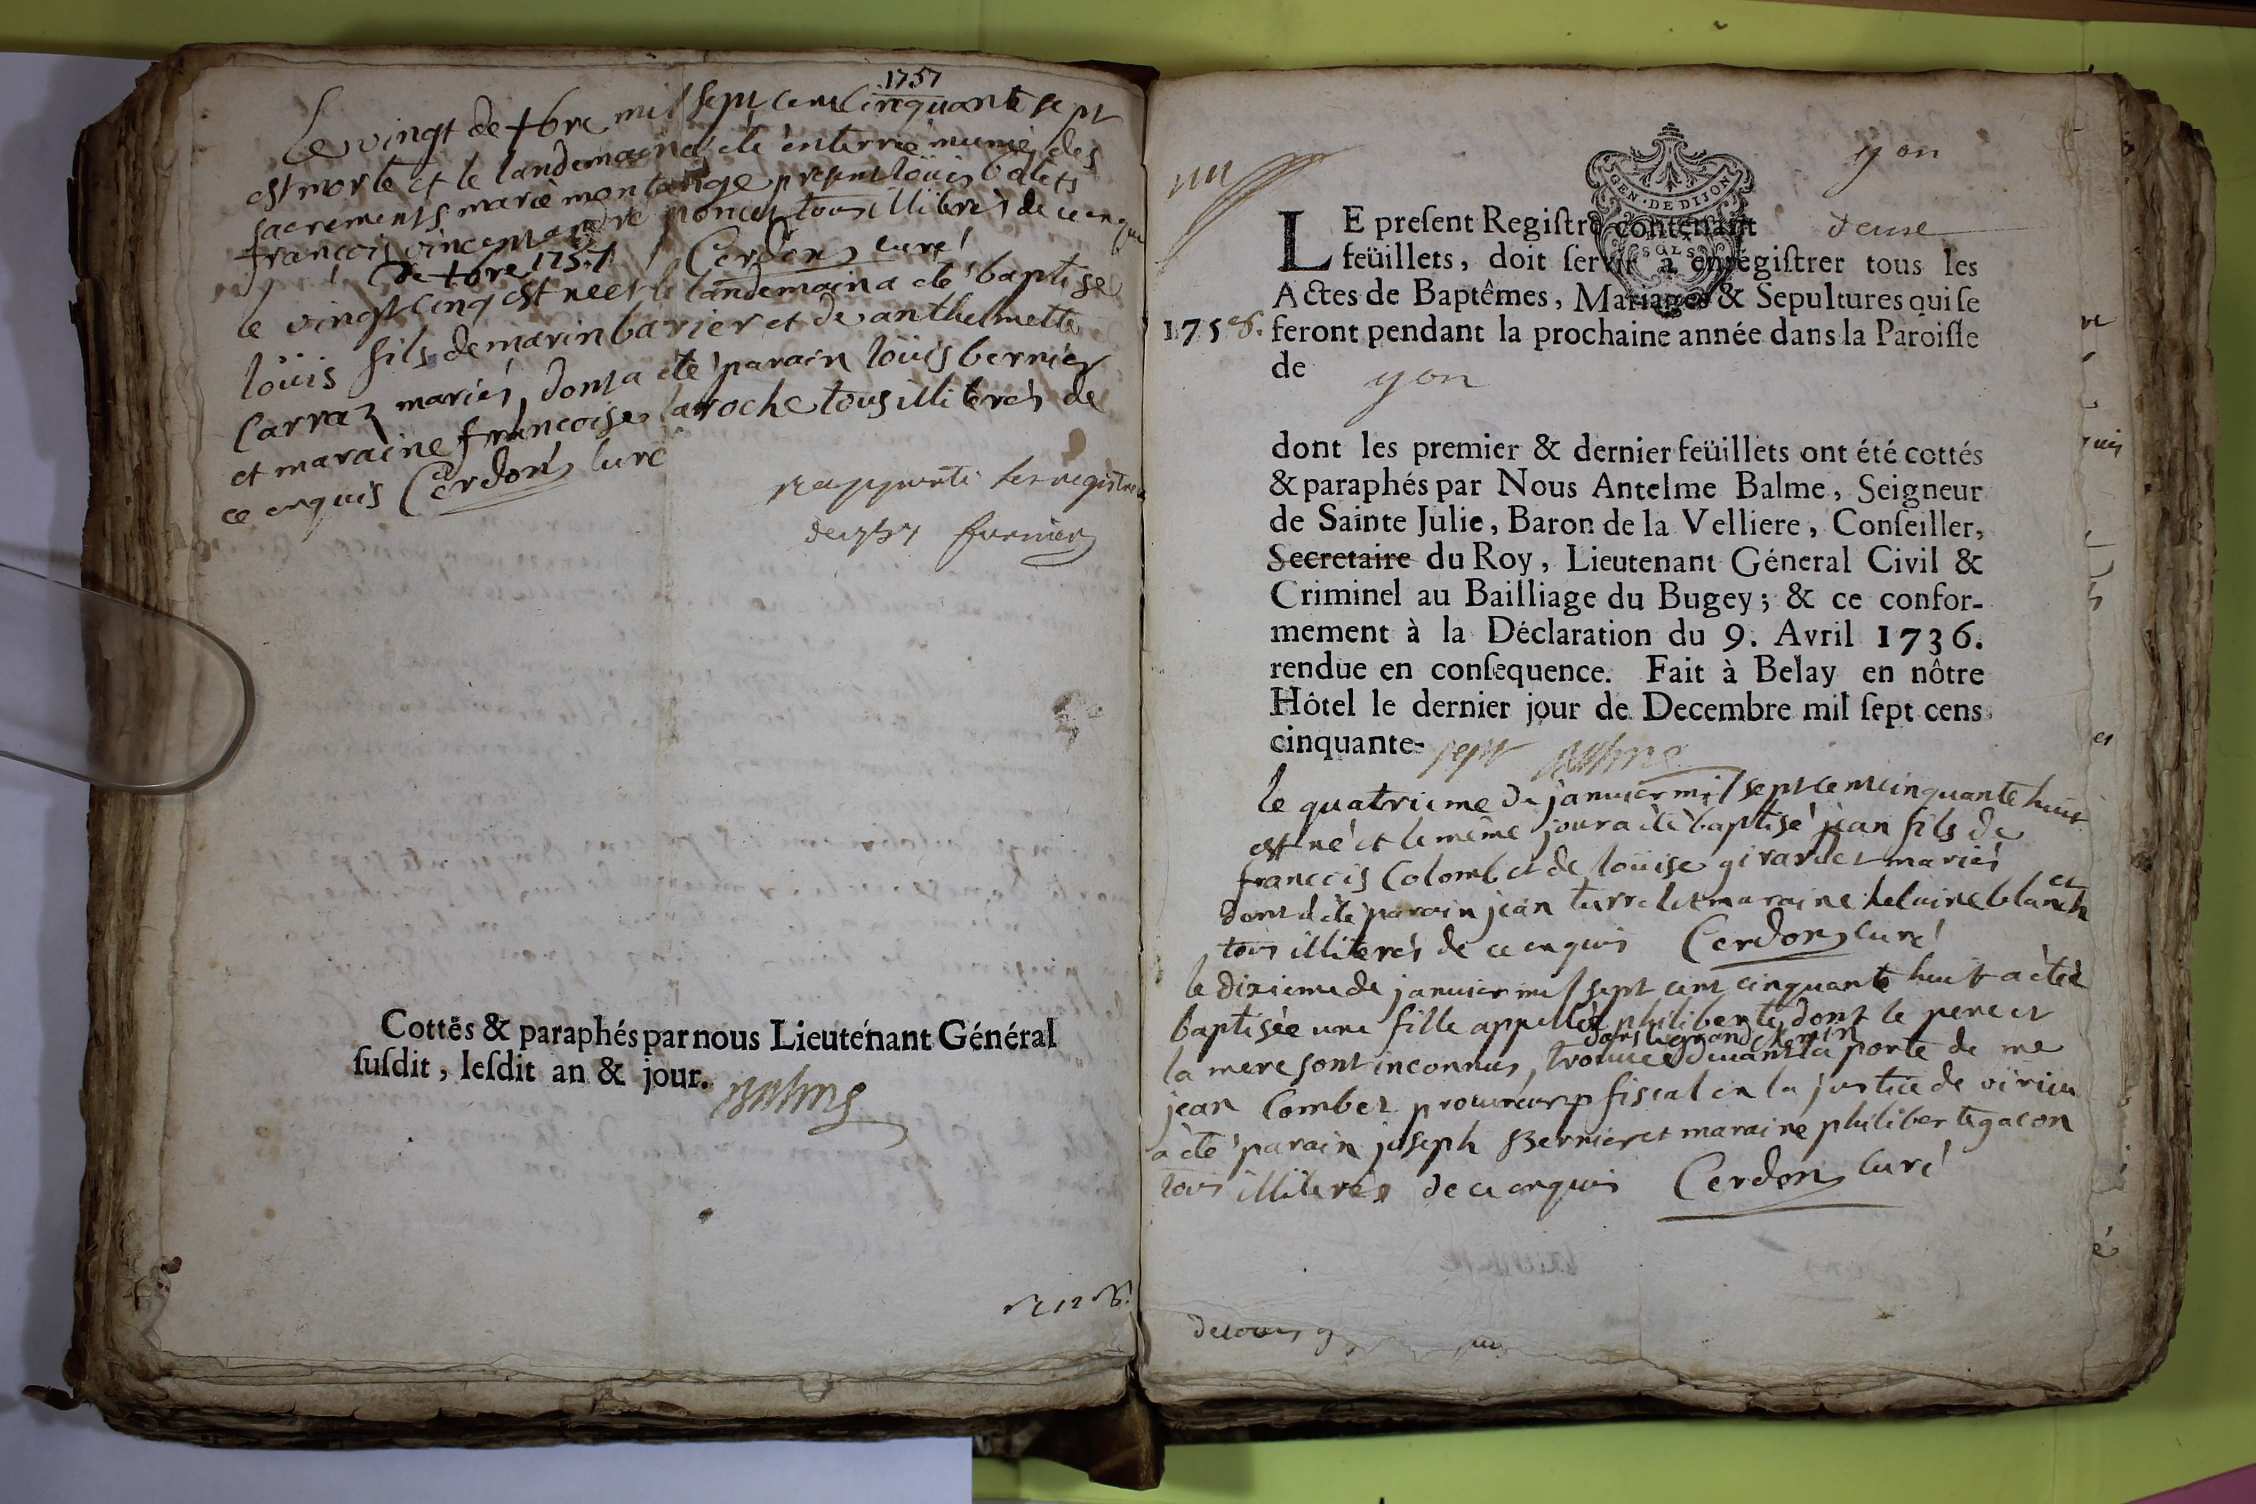 1757
Le vingt de xbre mil sept cent cinquante sept
est morte et le landemain a été enterrée munie des
sacrements marie montange present loüis balets
françois vincent andre poncet tous illiterés de ce enquis
Cerdon curé
de xbre 1757
le vingt cinq est né et le landemain a été baptisé
loüis fils de marin barier et de anthelmette
Carraz mariés, dont a été parain loüis bernier
et maraine françoise laroche tous illiterés de
ce enquis Cerdon curé
rapporté les registres
de 1757 furnier
Cottés & paraphés par nous Lieutenant Général
susdit, lesdit an & jour. Balme
GEN. DE DIJON
SOLS
yon
LE present Registre contenant deux
feüillets, doit servir à enregistrer tous les
Actes de Baptêmes, Mariages & Sepultures qui se
1758. feront pendant la prochaine année dans la Paroisse
de yon
dont les premier & dernier feüillets ont été cottés
& paraphés par Nous Antelme Balme, Seigneur
de Sainte Julie, Baron de la Velliere, Conseiller,
Secretaire du Roy, Lieutenant Géneral Civil &
Criminel au Bailliage du Bugey; & ce confor-
mement à la Déclaration du 9. Avril 1736.
rendue en consequence. Fait à Belay en nôtre
Hôtel le dernier jour de Decembre mil sept cens
cinquante-sept Balme
le quatrieme de janvier mil sept cent cinquante huit
est né et le même jour a été baptisé jean fils de
francois Colomb et de loüise girardet mariés
dont a été parain jean turrel et maraine helaine blanchet
tous illiterés de ce enquis Cerdon curé
le dixieme de janvier mil sept cent cinquante huit a étée
baptisée une fille appellée philiberte, dont le pere et
dans le grand chemin
la mere sont inconnus, trouvée devant la porte de me
jean Combet procureur fiscal en la justice de virieu
a été parain joseph Bernier et maraine philiberte gacon
tous illiterés de ce enquis Cerdon curé